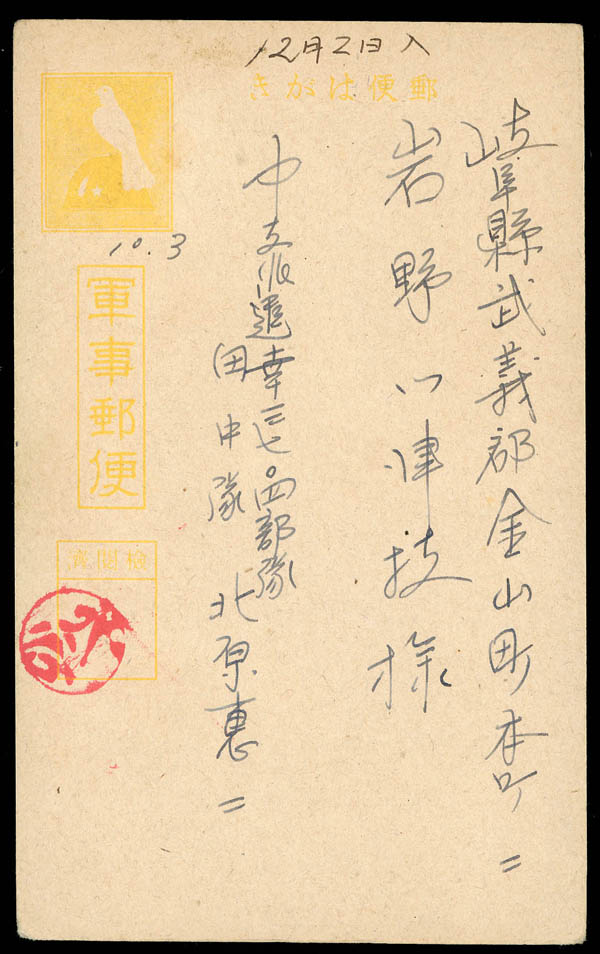 12月2日入
郵便はがき
岐阜縣武義郡金山町本町
岩野い津枝様
中支派遣幸三七〇四部隊
田中隊 北原惠
10.3
軍事郵便
検閲濟